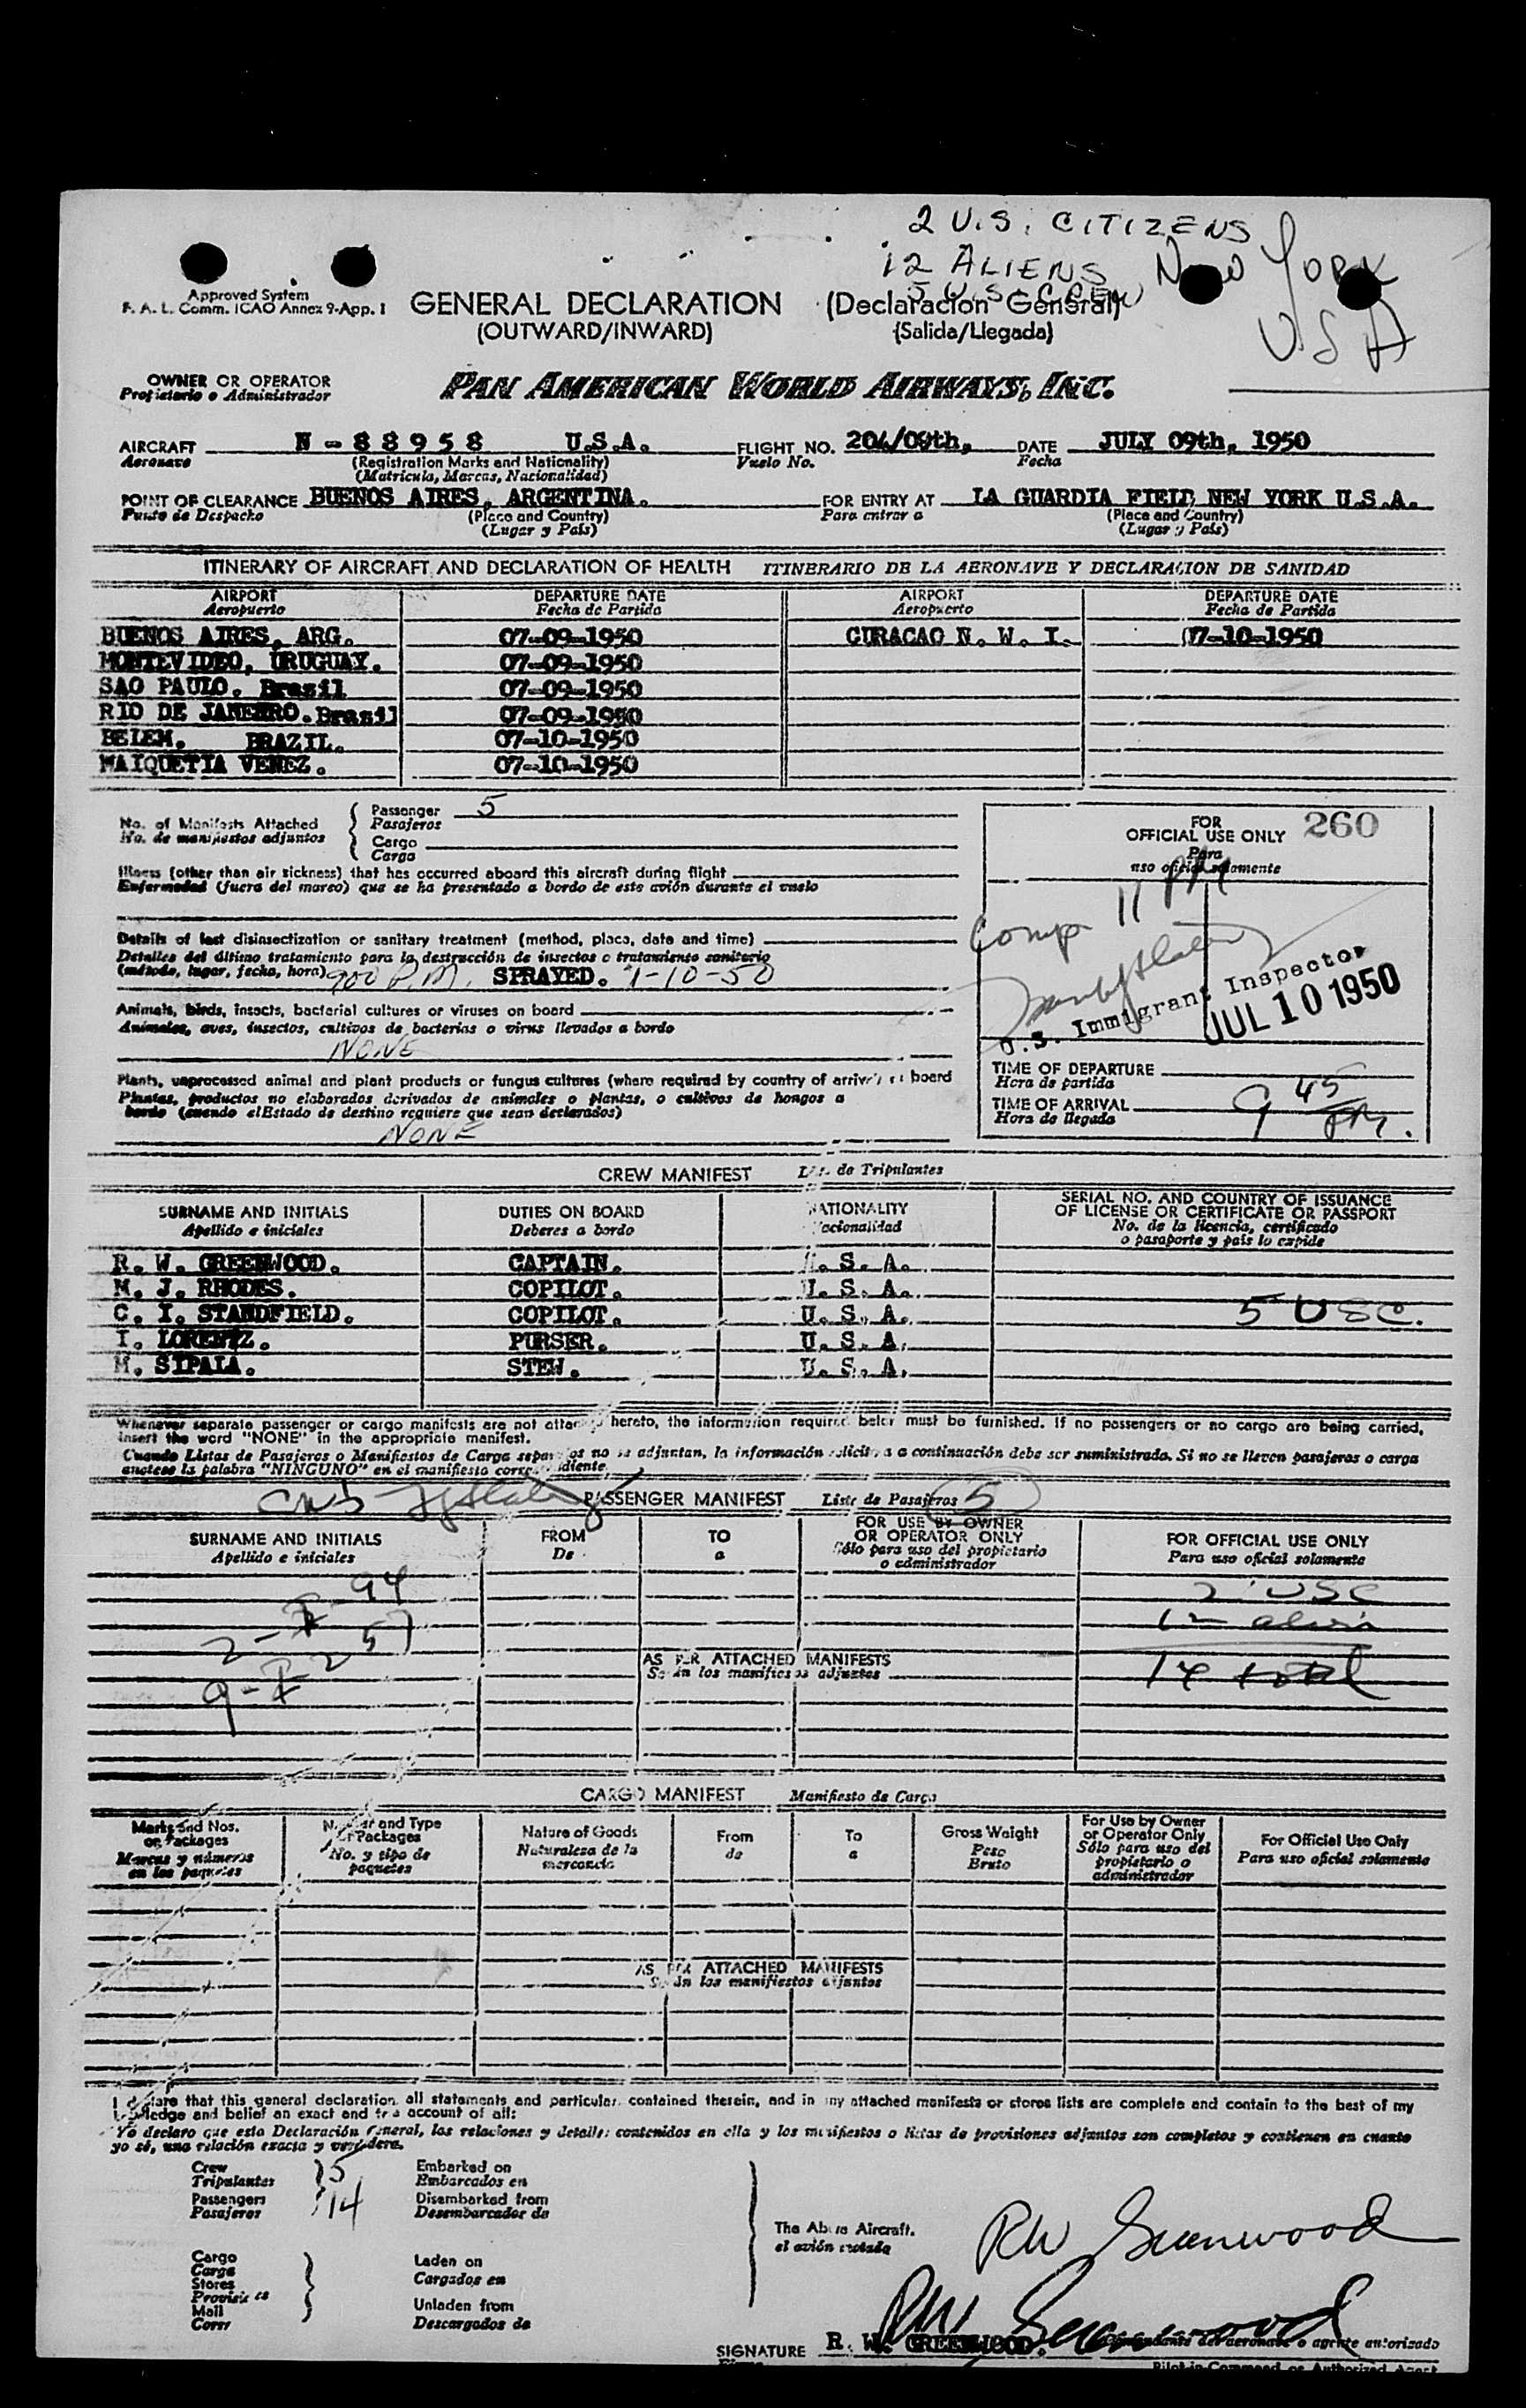 2 U.S. CITIZENS
12 ALIENS New YORK
5 U.S. CREW
U S A
Approved System
F. A. L. Comm. ICAO Annex 9-App. 1
GENERAL DECLARATION (Declaración General)
(OUTWARD/INWARD) (Salida/Llegada)
OWNER OR OPERATOR PAN AMERICAN WORLD AIRWAYS, INC.
Propietario o Administrador
AIRCRAFT N-88958 U.S.A. FLIGHT NO. 204/09th, DATE JULY 09th, 1950
Aeronave (Registration Marks and Nationality) Vuelo No. Fecha
(Matrícula, Marcas, Nacionalidad)
POINT OF CLEARANCE BUENOS AIRES, ARGENTINA. FOR ENTRY AT LA GUARDIA FIELD NEW YORK U.S.A.
Punto de Despacho (Place and Country) Para entrar a (Place and Country)
(Lugar y País) (Lugar y País)
ITINERARY OF AIRCRAFT AND DECLARATION OF HEALTH ITINERARIO DE LA AERONAVE Y DECLARACION DE SANIDAD
AIRPORT DEPARTURE DATE AIRPORT DEPARTURE DATE
Aeropuerto Fecha de Partida Aeropuerto Fecha de Partida
BUENOS AIRES, ARG. 07-09-1950 CURACAO N. W. I. 07-10-1950
MONTEVIDEO, URUGUAY. 07-09-1950
SAO PAULO. Brasil 07-09-1950
RIO DE JANEIRO. Brasil 07-09-1950
BELEM. BRAZIL. 07-10-1950
MAIQUETIA VENEZ. 07-10-1950
No. of Manifests Attached Passenger 5
No. de manifiestos adjuntos Pasajeros
Cargo
Carga
FOR
OFFICIAL USE ONLY 260
Para
uso oficial solamente
Illness (other than air sickness) that has occurred aboard this aircraft during flight
Enfermedad (fuera del mareo) que se ha presentado a bordo de este avión durante el vuelo
Comp 11 PM
Details of last disinsectization or sanitary treatment (method, place, date and time)
Detalles del último tratamiento para la destrucción de insectos o tratamiento sanitario
(método, lugar, fecha, hora) 900 P.M. SPRAYED. 7-10-50
U.S. Immigrant Inspector
JUL 10 1950
Animals, birds, insects, bacterial cultures or viruses on board
Animales, aves, insectos, cultivos de bacterias o virus llevados a bordo
NONE
Plants, unprocessed animal and plant products or fungus cultures (where required by country of arrival) on board
Plantas, productos no elaborados derivados de animales o plantas, o cultivos de hongos a
bordo (cuando el Estado de destino requiere que sean declarados)
NONE
TIME OF DEPARTURE
Hora de partida
TIME OF ARRIVAL 9 45 PM.
Hora de llegada
CREW MANIFEST Lista de Tripulantes
SURNAME AND INITIALS DUTIES ON BOARD NATIONALITY SERIAL NO. AND COUNTRY OF ISSUANCE
OF LICENSE OR CERTIFICATE OR PASSPORT
Apellido e iniciales Deberes a bordo Nacionalidad No. de la licencia, certificado
o pasaporte y país lo expide
R. W. GREENWOOD. CAPTAIN. U. S. A.
M. J. RHODES. COPILOT. U. S. A.
C. I. STANDFIELD. COPILOT. U. S. A. 5 USC.
I. LORENTZ. PURSER. U. S. A.
M. SIPALA. STEW. U. S. A.
Whenever separate passenger or cargo manifests are not attached hereto, the information required below must be furnished. If no passengers or no cargo are being carried,
insert the word "NONE" in the appropriate manifest.
Cuando Listas de Pasajeros o Manifiestos de Carga separados no se adjuntan, la información solicitada a continuación debe ser suministrada. Si no se lleven pasajeros o carga
anótese la palabra "NINGUNO" en el manifiesto correspondiente.
PASSENGER MANIFEST Lista de Pasajeros 5
SURNAME AND INITIALS FROM TO FOR USE BY OWNER
OR OPERATOR ONLY FOR OFFICIAL USE ONLY
Apellido e iniciales De a Sólo para uso del propietario
o administrador Para uso oficial solamente
2 - I - 94 2 USC
9 - I - 257 12 aliens
14 total
AS PER ATTACHED MANIFESTS
Según los manifiestos adjuntos
CARGO MANIFEST Manifiesto de Carga
Marks and Nos.
or Packages
Marcas y números
en los paquetes
Number and Type
of Packages
No. y tipo de
paquetes
Nature of Goods
Naturaleza de la
mercancía
From
de
To
a
Gross Weight
Peso
Bruto
For Use by Owner
or Operator Only
Sólo para uso del
propietario o
administrador
For Official Use Only
Para uso oficial solamente
AS PER ATTACHED MANIFESTS
Según los manifiestos adjuntos
I declare that this general declaration all statements and particulars contained therein, and in my attached manifests or stores lists are complete and contain to the best of my
knowledge and belief an exact and true account of all:
Yo declaro que esta Declaración General, las relaciones y detalles contenidos en ella y los manifiestos o listas de provisiones adjuntos son completos y contienen en cuanto
yo sé, una relación exacta y verdadera.
Crew 5 Embarked on
Tripulantes Embarcados en
Passengers 14 Disembarked from
Pasajeros Desembarcador de
The Above Aircraft.
el avión
RW Greenwood
Cargo
Carga
Stores
Mail
Laden on
Cargados en
Unladen from
Descargados de
RW Greenwood
SIGNATURE R. W. GREENWOOD. Comandante del aeronave o agente autorizado
Firma Pilot-in-Command or Authorized Agent